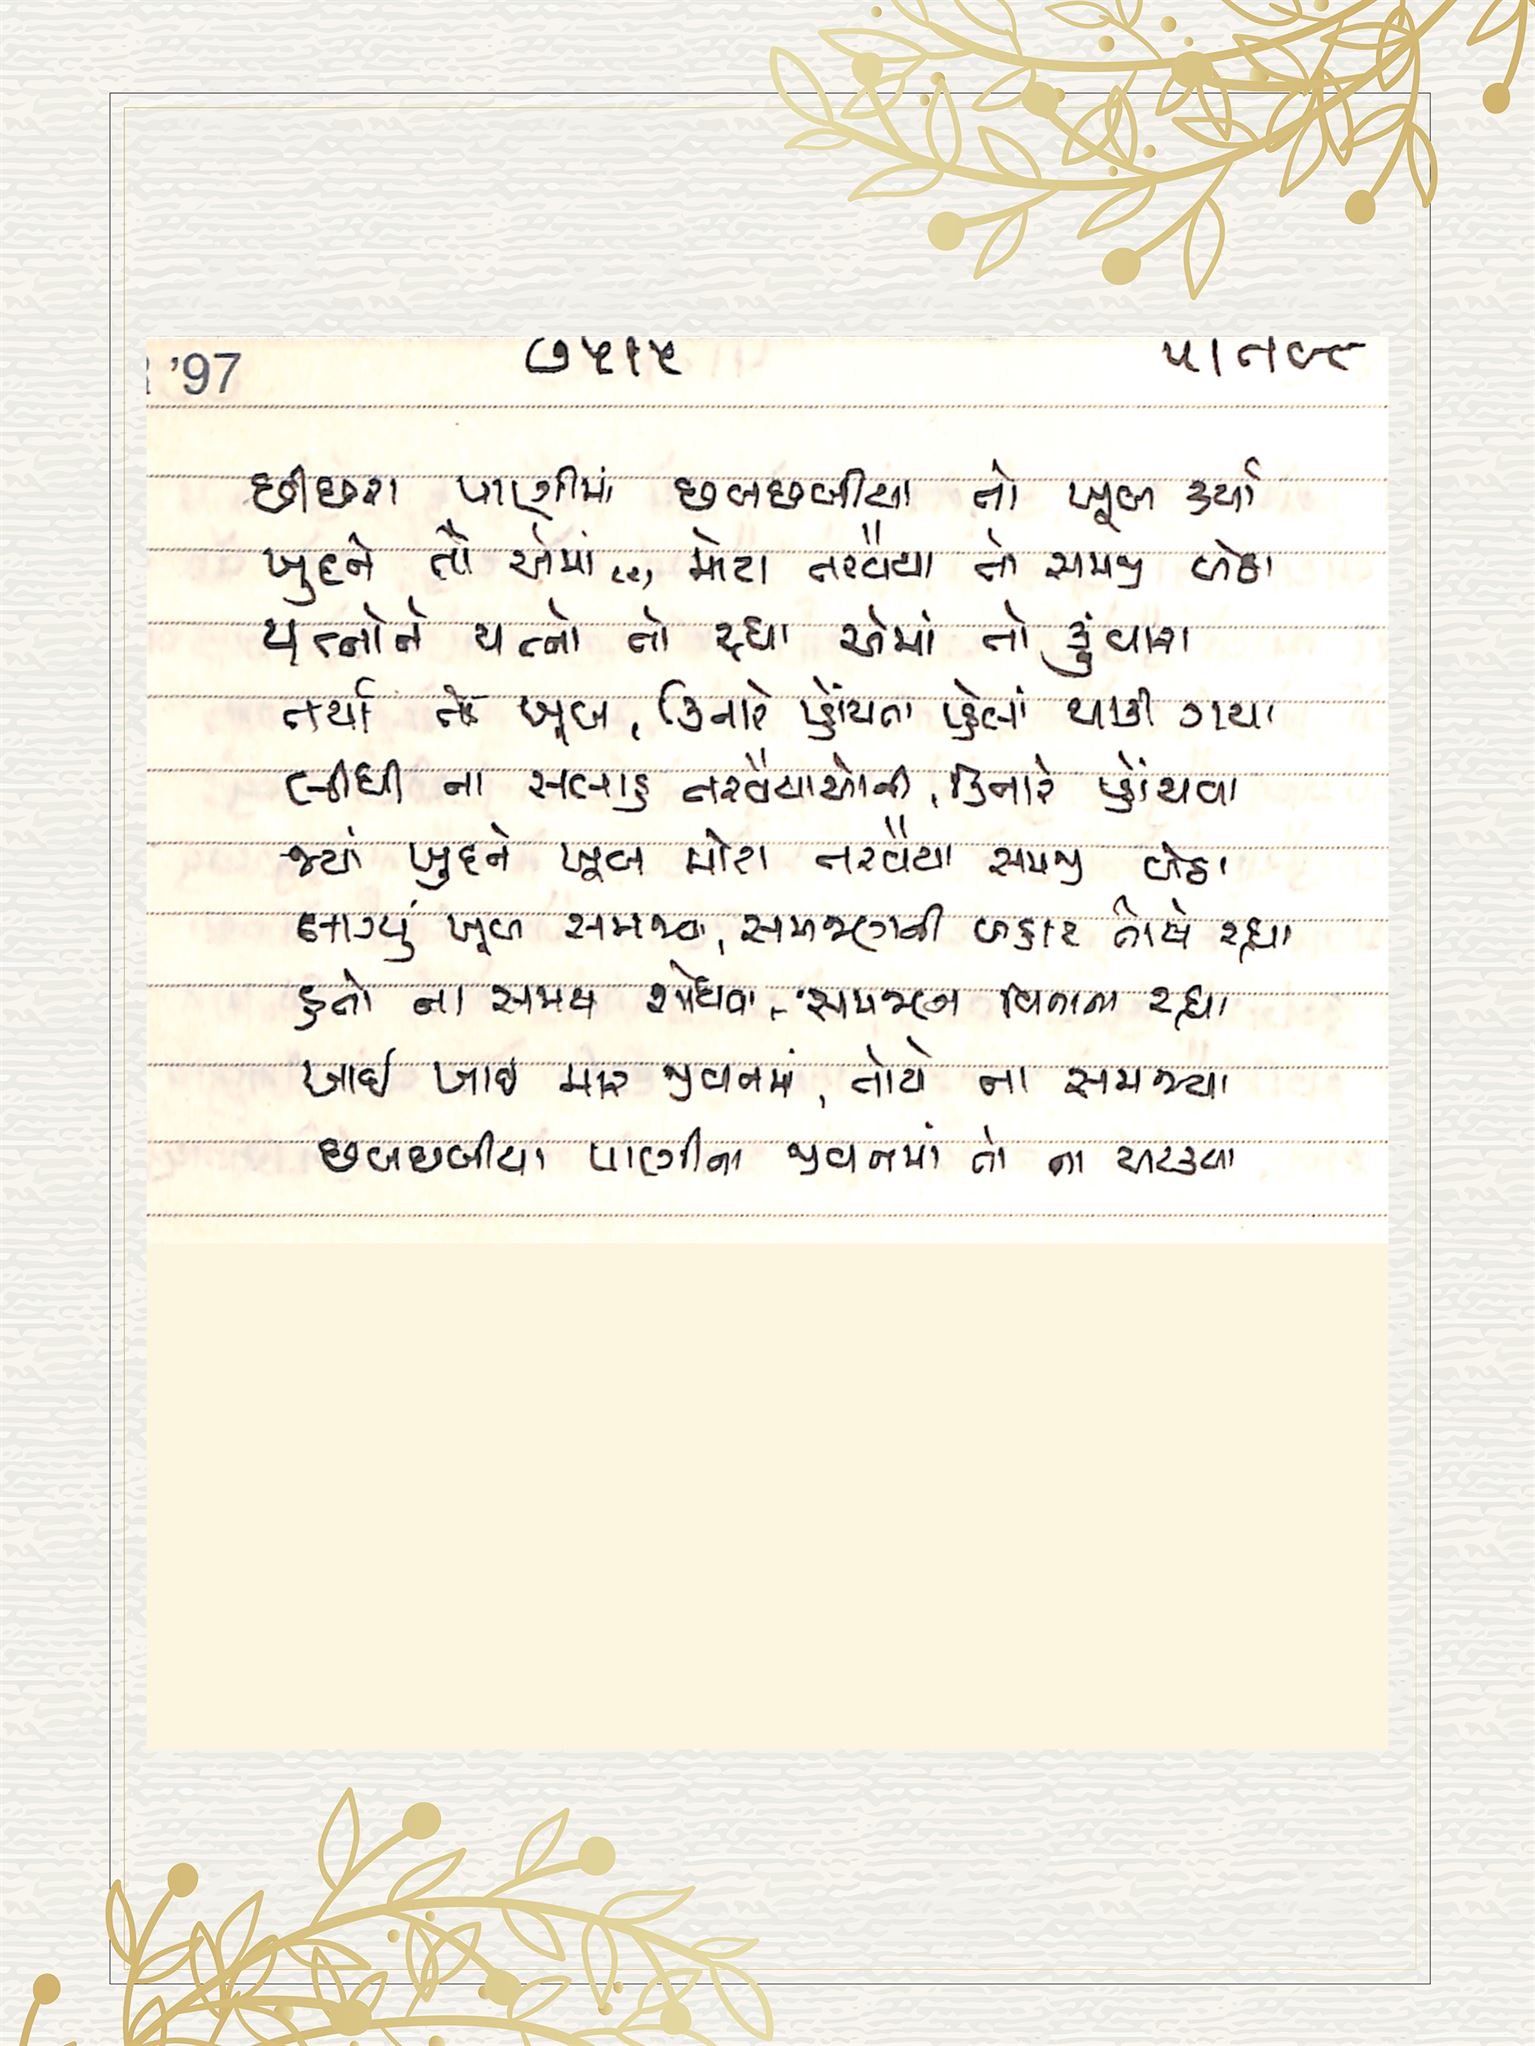 '97 ૭૫૧૫
છીછરા પાણીમાં છબછબીયા તો ખૂબ કર્યા
ખુદને તો એમાં મોટા તરવૈયા તો સમજી બેઠા
યત્નોને યત્નો તો રહ્યા એમાં તો કુંવારા
તર્યા ખૂબ, કિનારે પ્હોંચતા પ્હેલાં થાકી ગયા
લીધી ના સલાહ તરવૈયાઓની, કિનારે પ્હોંચવા
જ્યાં ખુદને ખૂબ મોટા તરવૈયા સમજી બેઠા
લાગ્યું ખૂબ સમજ્યા, સમજણની બહાર તોયે રહ્યા
હતો ના સમય શોધવા, સમજણ વિનાના રહ્યા
ખાઈ ખાઈ માર જીવનમાં, તોયે ના સમજ્યા
છબછબીયા પાણીના જીવનમાં તો ના અટક્યા